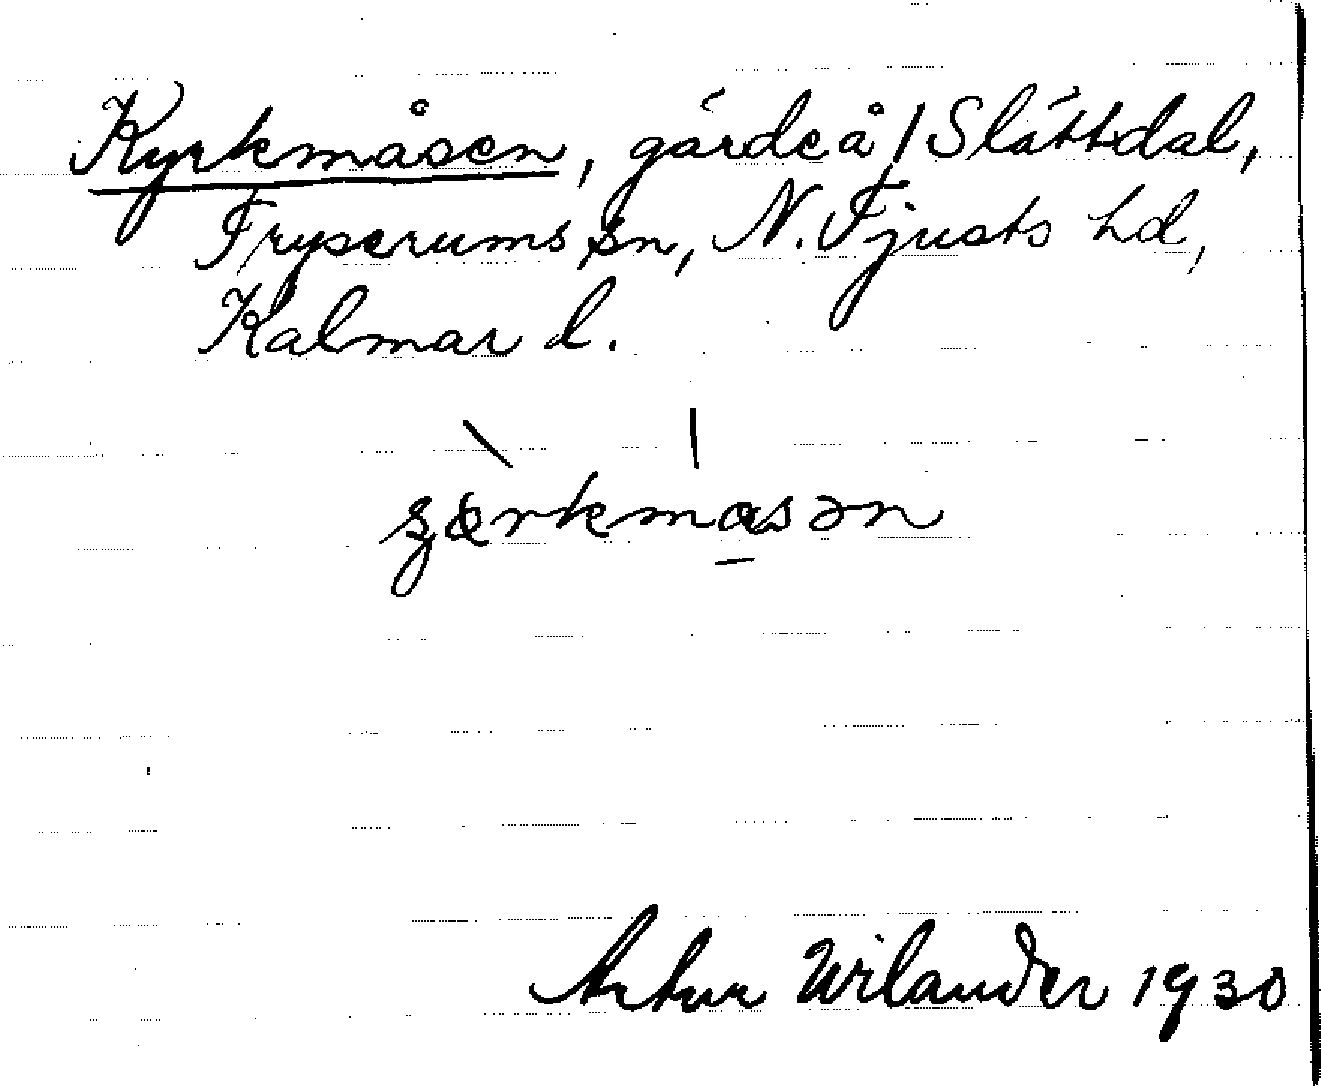 Kyrkmåsen, gärde å / Slättdal,
Fryserums sn, N. Tjusts hd,
Kalmar l.
Artur Wilander 1930